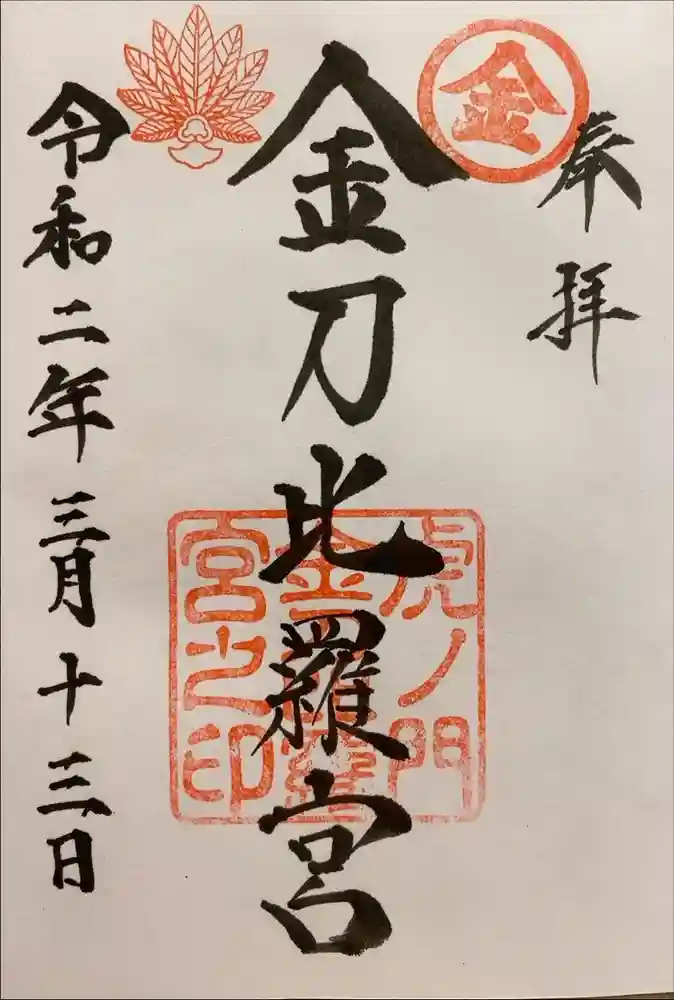 奉拝
金
金刀比羅宮
虎ノ門
宮之印
令和二年三月十三日